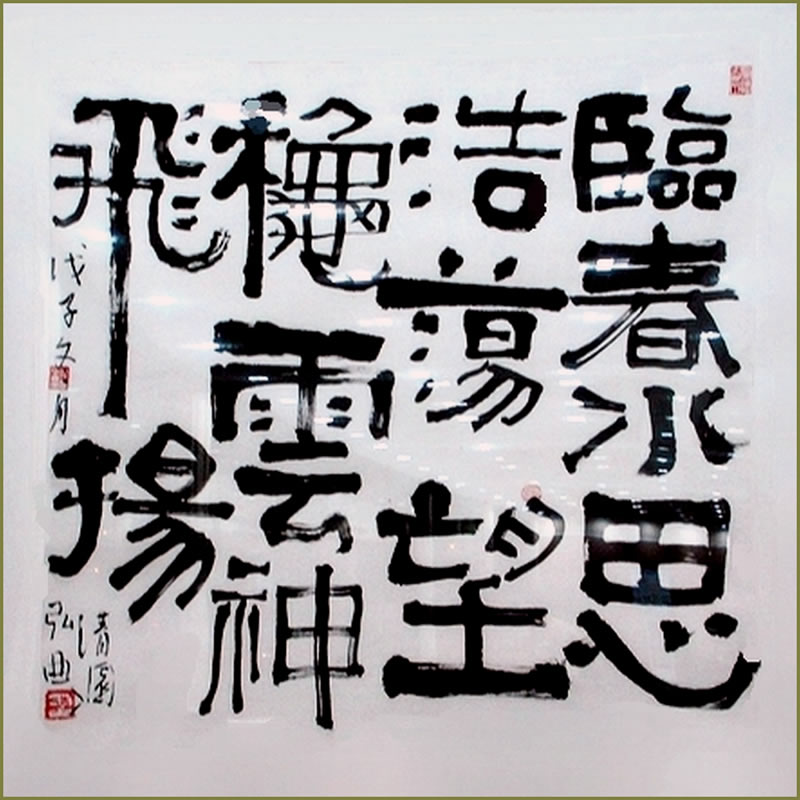 臨春水思
浩蕩望
龝雲神
飛揚
戊子文月
清園
弘曲